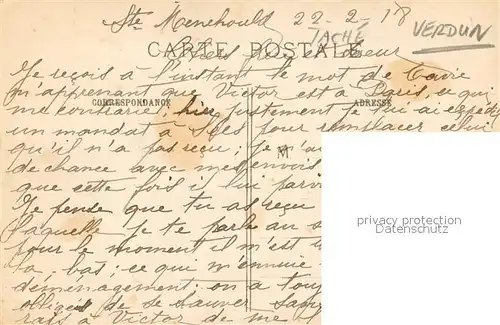 Ste Menehould 22-2-18
TACHÉ
VERDUN
CARTE POSTALE
Chers frère et soeur
Je reçois à l'instant le mot de
m'apprenant que Victor est à Paris, ce qui
CORRESPONDANCE
ADRESSE
me contrarie, hier justement je lui ai expédié
un mandat à pour remplacer celui
qu'il n'a pas reçu; je n'ai
de chance avec mes envois
M
que cette fois il lui
Je pense que tu as reçu
laquelle je te parle au
pour le moment il m'est
là, bas; ce qui m'ennuie
déménagement; on a
obligés de se sauver sans
à Victor de me
privacy protection
Datenschutz